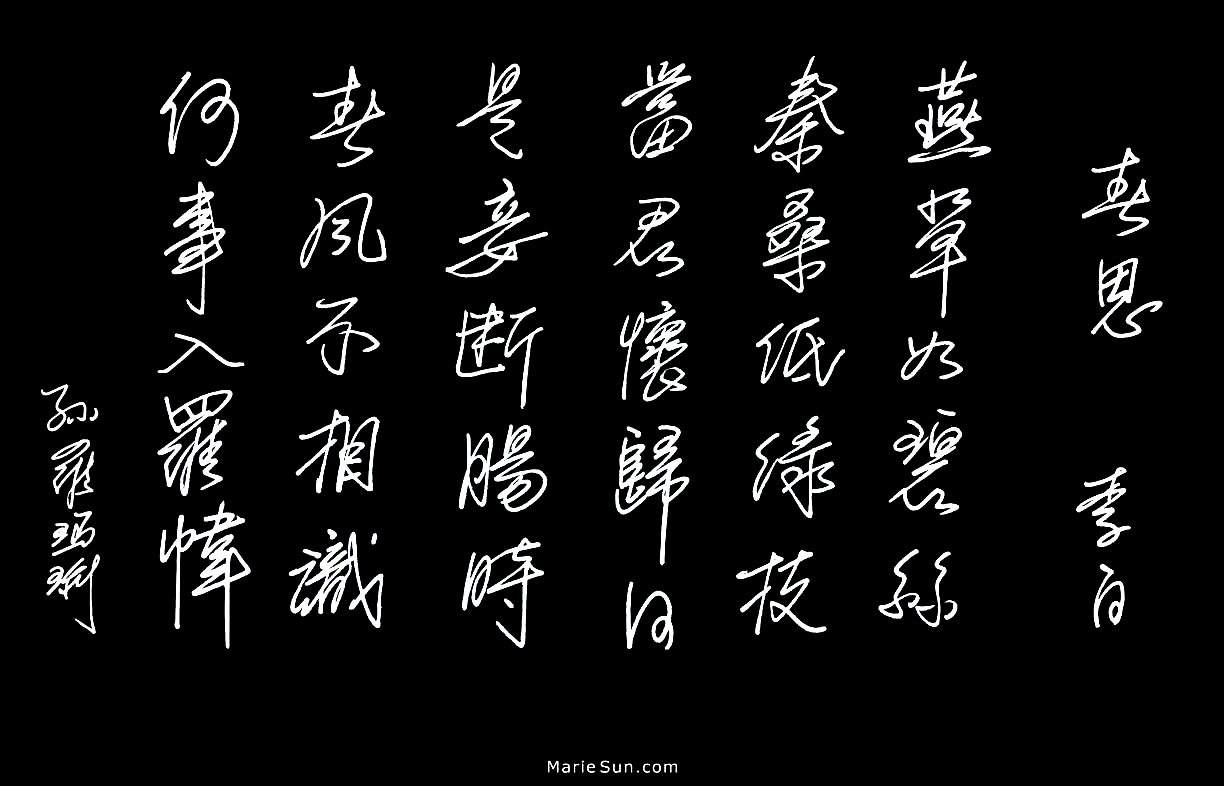 春思 李白
燕草如碧絲
秦桑低綠枝
當君懷歸日
是妾斷腸時
春風不相識
何事入羅幃
孫羅瑪琍
MarieSun.com